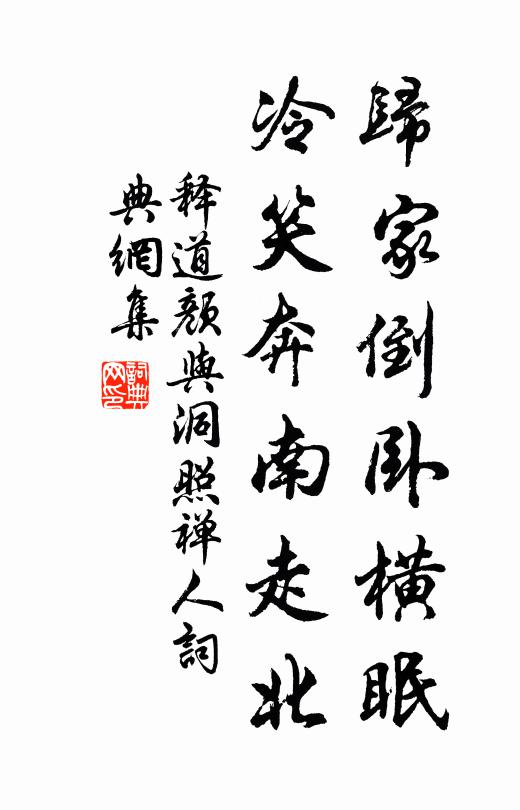 歸家倒卧橫眠
冷笑奔南走北
释道顏與洞照禅人詞
典網集
詞典
网印